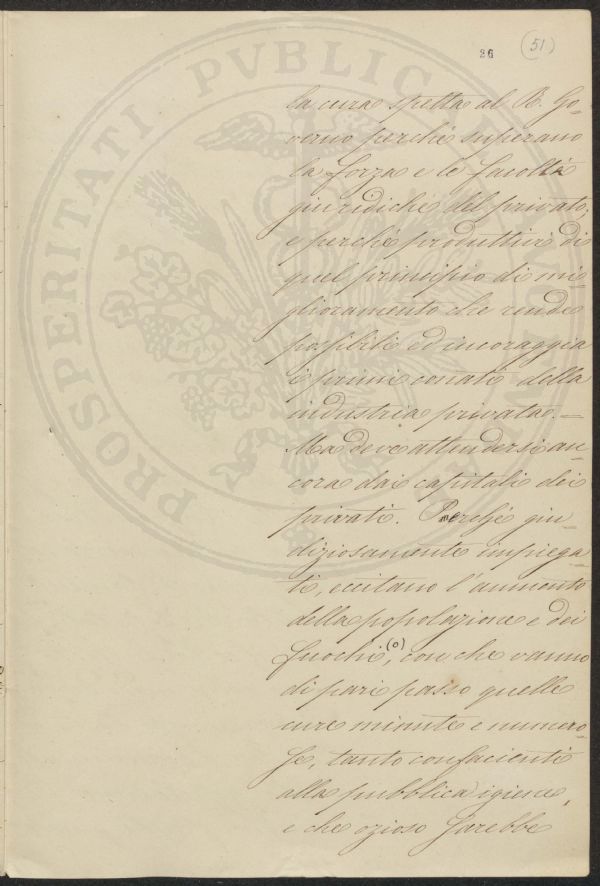 26 (51)
la cura spetta al R. Go-
verno perché superano
la forza e le facoltà
giuridiche del privato;
e perché produttive di
quel principio di mi-
glioramento che rende
possibili ed incoraggia
i primi conati della
industria privata.=
Ma deve attendersi an-
cora dai capitali dei
privati. Perché giu-
diziosamente impiega-
ti, eccitano l'aumento
della popolazione e dei
fuochi,(o) con che vanno
di pari passo quelle
cure minute e numero-
se, tanto confacenti
alla pubblica igiene,
e che ozioso sarebbe
PROSPERITATI PVBLICAE